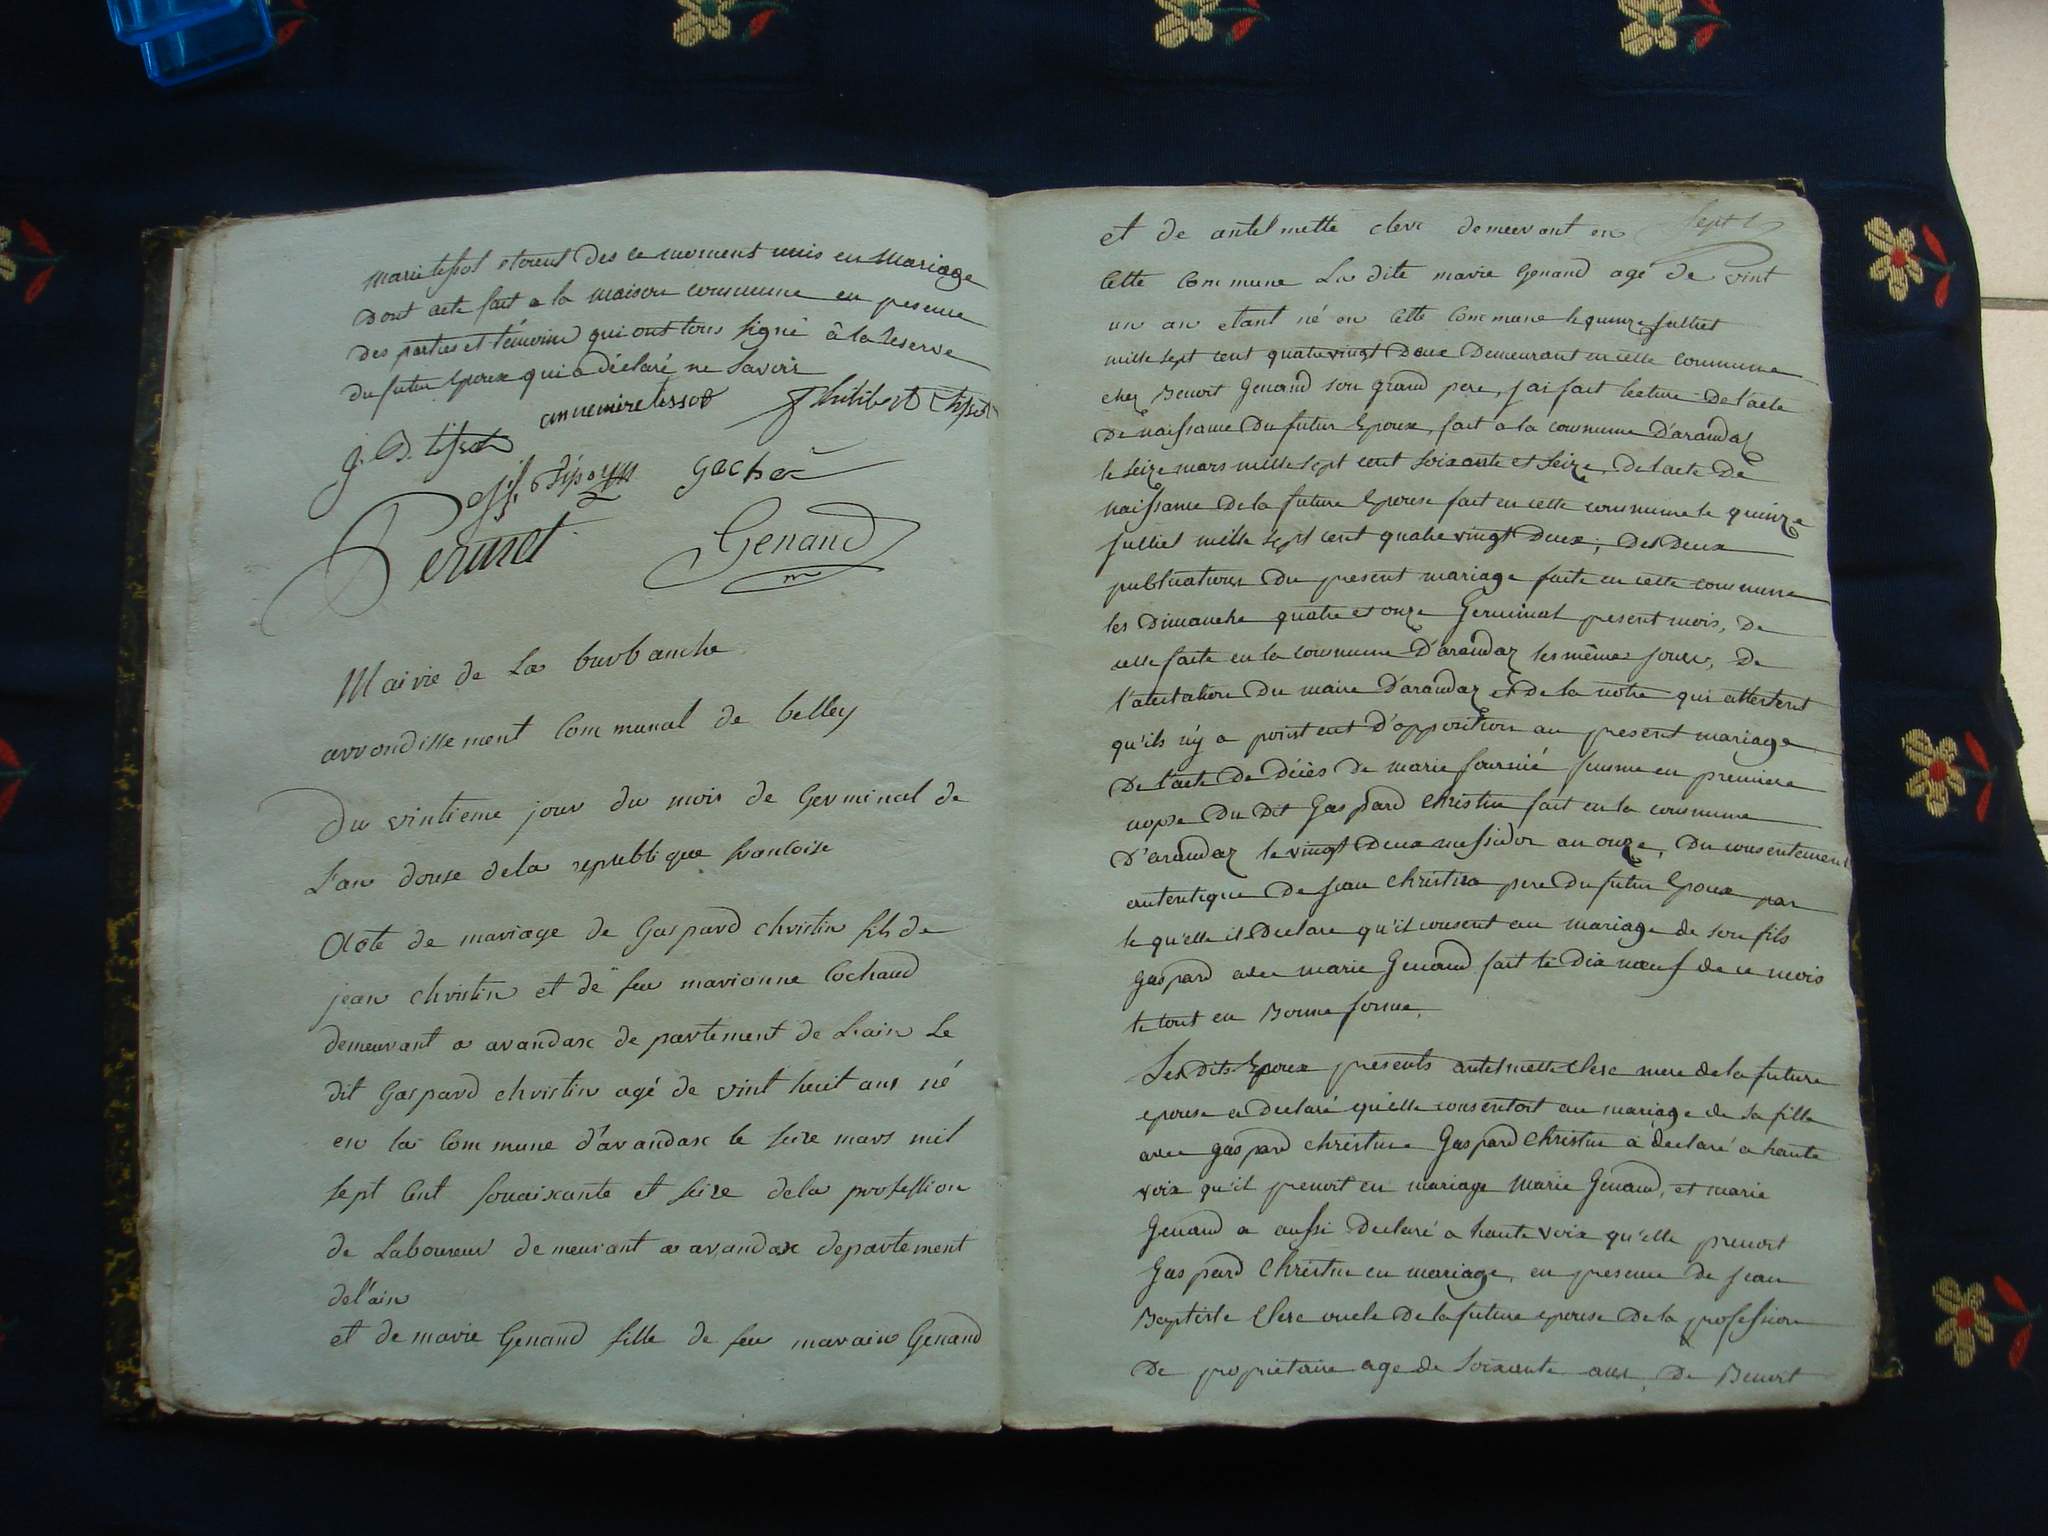 marie tissot etoient des ce moment unis en mariage
dont acte fait a la maison commune en presence
des parties et témoins qui ont tous signé â la reserve
du futur Epoux qui a déclaré ne savoir
j. B. tissot annemire tissot Philibert tissot
gochet
Perinet Genand
Mairie de La burbanche
arrondissement communal de belley
Du vintieme jour du mois de Germinal de
L'an douse dela republique francoise
Acte de mariage de Gaspard christin fils de
jean christin et de feu marianne Cochaud
demeurant a arandax de partement de L'ain Le
dit Gaspard christin agé de vint huit ans né
en la Commune d'arandax le seize mars mil
sept Cent souaixante et seize dela profession
de Laboureur demeurant a arandax departement
del'ain
et de marie Genand fille de feu marain Genand
et de antelmette clerc demeurant en
Cette Commune La dite marie Genand agé de vint
un an etant né en Cette Commune le quinze julliet
mille sept cent quatre vingt deux Demeurant en cette commune
chez Benoit Genand son grand pere, j'ai fait lecture de l'acte
De naissance du futur Epoux, fait a la commune D'arandaz
le seize mars mille sept cent soixante et seize, de l'acte De
naissance de la future Epouse fait en cette commune le quinze
julliet mille sept cent quatre vingt Deux, Des Deux
publications Du present mariage faite en cette commune
les Dimanche quatre et onze Germinal present mois, De
celle faite en la commune D'arandaz les même jours, De
l'atestation Du maire D'arandaz et De la notre qui attestent
qu'ils n'y a point eut D'opposition au present mariage
De l'acte De Décès De marie fournié femme en premiere
nopse Du Dit Gaspard Christin fait en la commune
D'arandaz le vingt Deux messidor an onze, Du consentement
autentique De Jean Christin pere Du futur Epoux par
le qu'elle il Declare qu'il consent au mariage de son fils
Gaspard avec marie Genand fait le Dix nœuf de ce mois
le tout en Bonne forme,
Les Dits Epoux presents antelmette Clerc mere de la future
epouse a Declaré qu'elle consentoit au mariage de sa fille
avec gaspard Christin Gaspard Christin a declaré a haute
voix qu'il prenoit en mariage Marie Genand, et marie
Genand a aussi Declaré a haute voix qu'elle prenoit
Gaspard Christin en mariage, en presence de Jean
Baptiste Clerc oncle De la future epouse De la profession
De proprietaire age de soixante ans, De Benoit